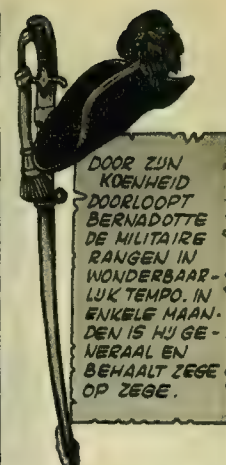 DOOR ZIJN
KOENHEID
DOORLOOPT
BERNADOTTE
DE MILITAIRE
RANGEN IN
WONDERBAAR-
LIJK TEMPO. IN
ENKELE MAAN-
DEN IS HIJ GE-
NERAAL EN
BEHAALT ZEGE
OP ZEGE.